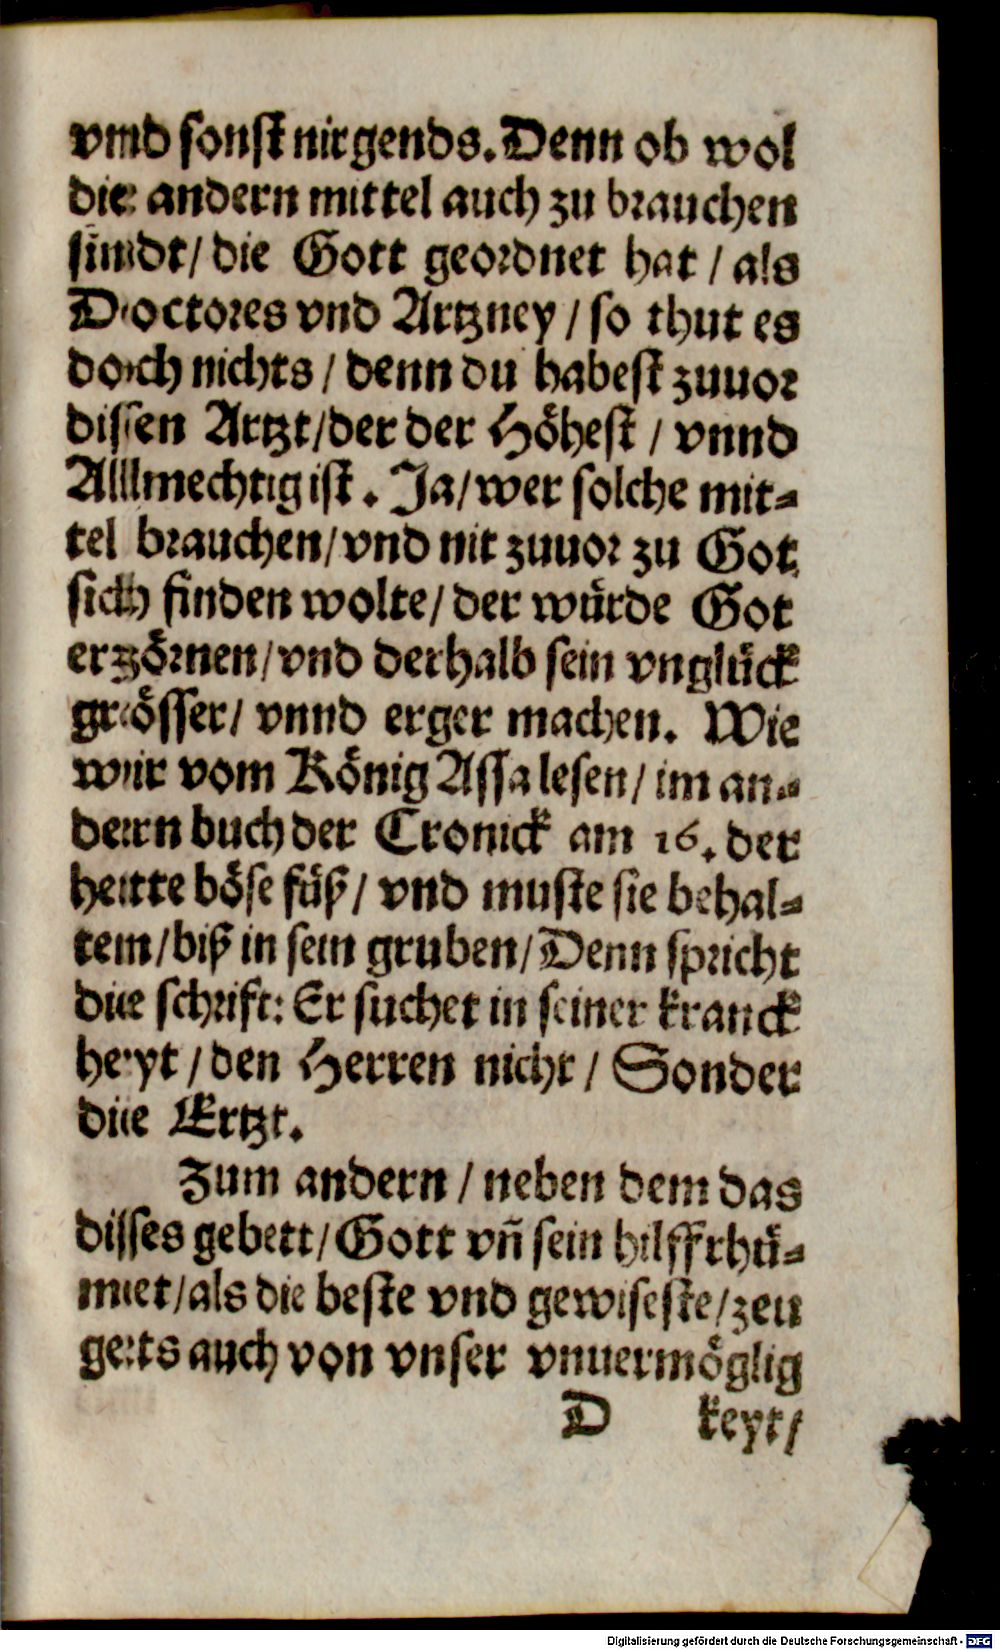 vnd sonst nirgends. Denn ob wol
die andern mittel auch zu brauchen
sindt/ die Gott geordnet hat / als
Doctores vnd Artzney / so thut es
doch nichts / denn du habest zuuor
dissen Artzt/der der Höhest / vnnd
Allmechtig ist. Ja/wer solche mit-
tel brauchen/vnd nit zuuor zu Got
sich finden wolte/ der würde Got
ertzörnen/vnd derhalb sein vnglück
grösser/ vnnd erger machen. Wie
wir vom König Assa lesen/ im an-
dern buch der Cronick am 16. der
hette böse füß/ vnd muste sie behal-
ten/biß in sein gruben/Denn spricht
die schrift: Er suchet in seiner kranck
heyt / den Herren nicht / Sonder
die Ertzt.
Zum andern / neben dem das
disses gebett/Gott vn̄ sein hilff rhü-
met/als die beste vnd gewiseste/zeu
gets auch von vnser vnuermöglig
D keyt/
Digitalisierung gefördert durch die Deutsche Forschungsgemeinschaft - DFG